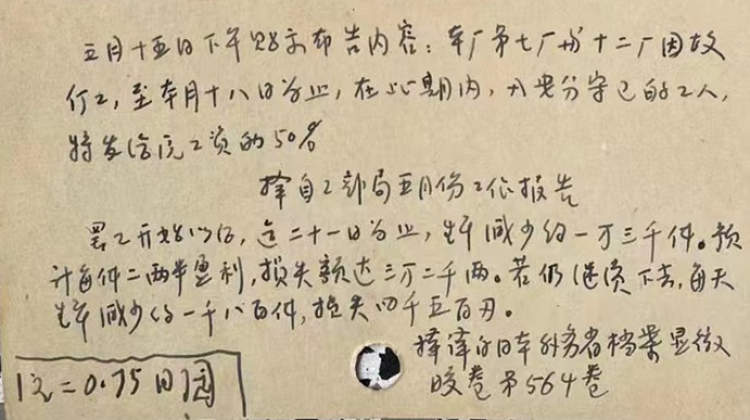 五月十五日下午贴示布告内容：本厂第七厂和十二厂因故
停工，至本月十八日为止，在此期内，凡安分守己的工人，
将发给原工资的50%
择自工部局五月份工作报告
罢工开始以后，迄二十一日为止，生产减少约一万三千件。预
计每件二两半盈利，损失额达三万二千两。若仍继续下去，每天
生产减少约一千八百件，损失四千五百刃。
择译自日本外务省档案显微
胶卷第564卷
1元=0.75日圆